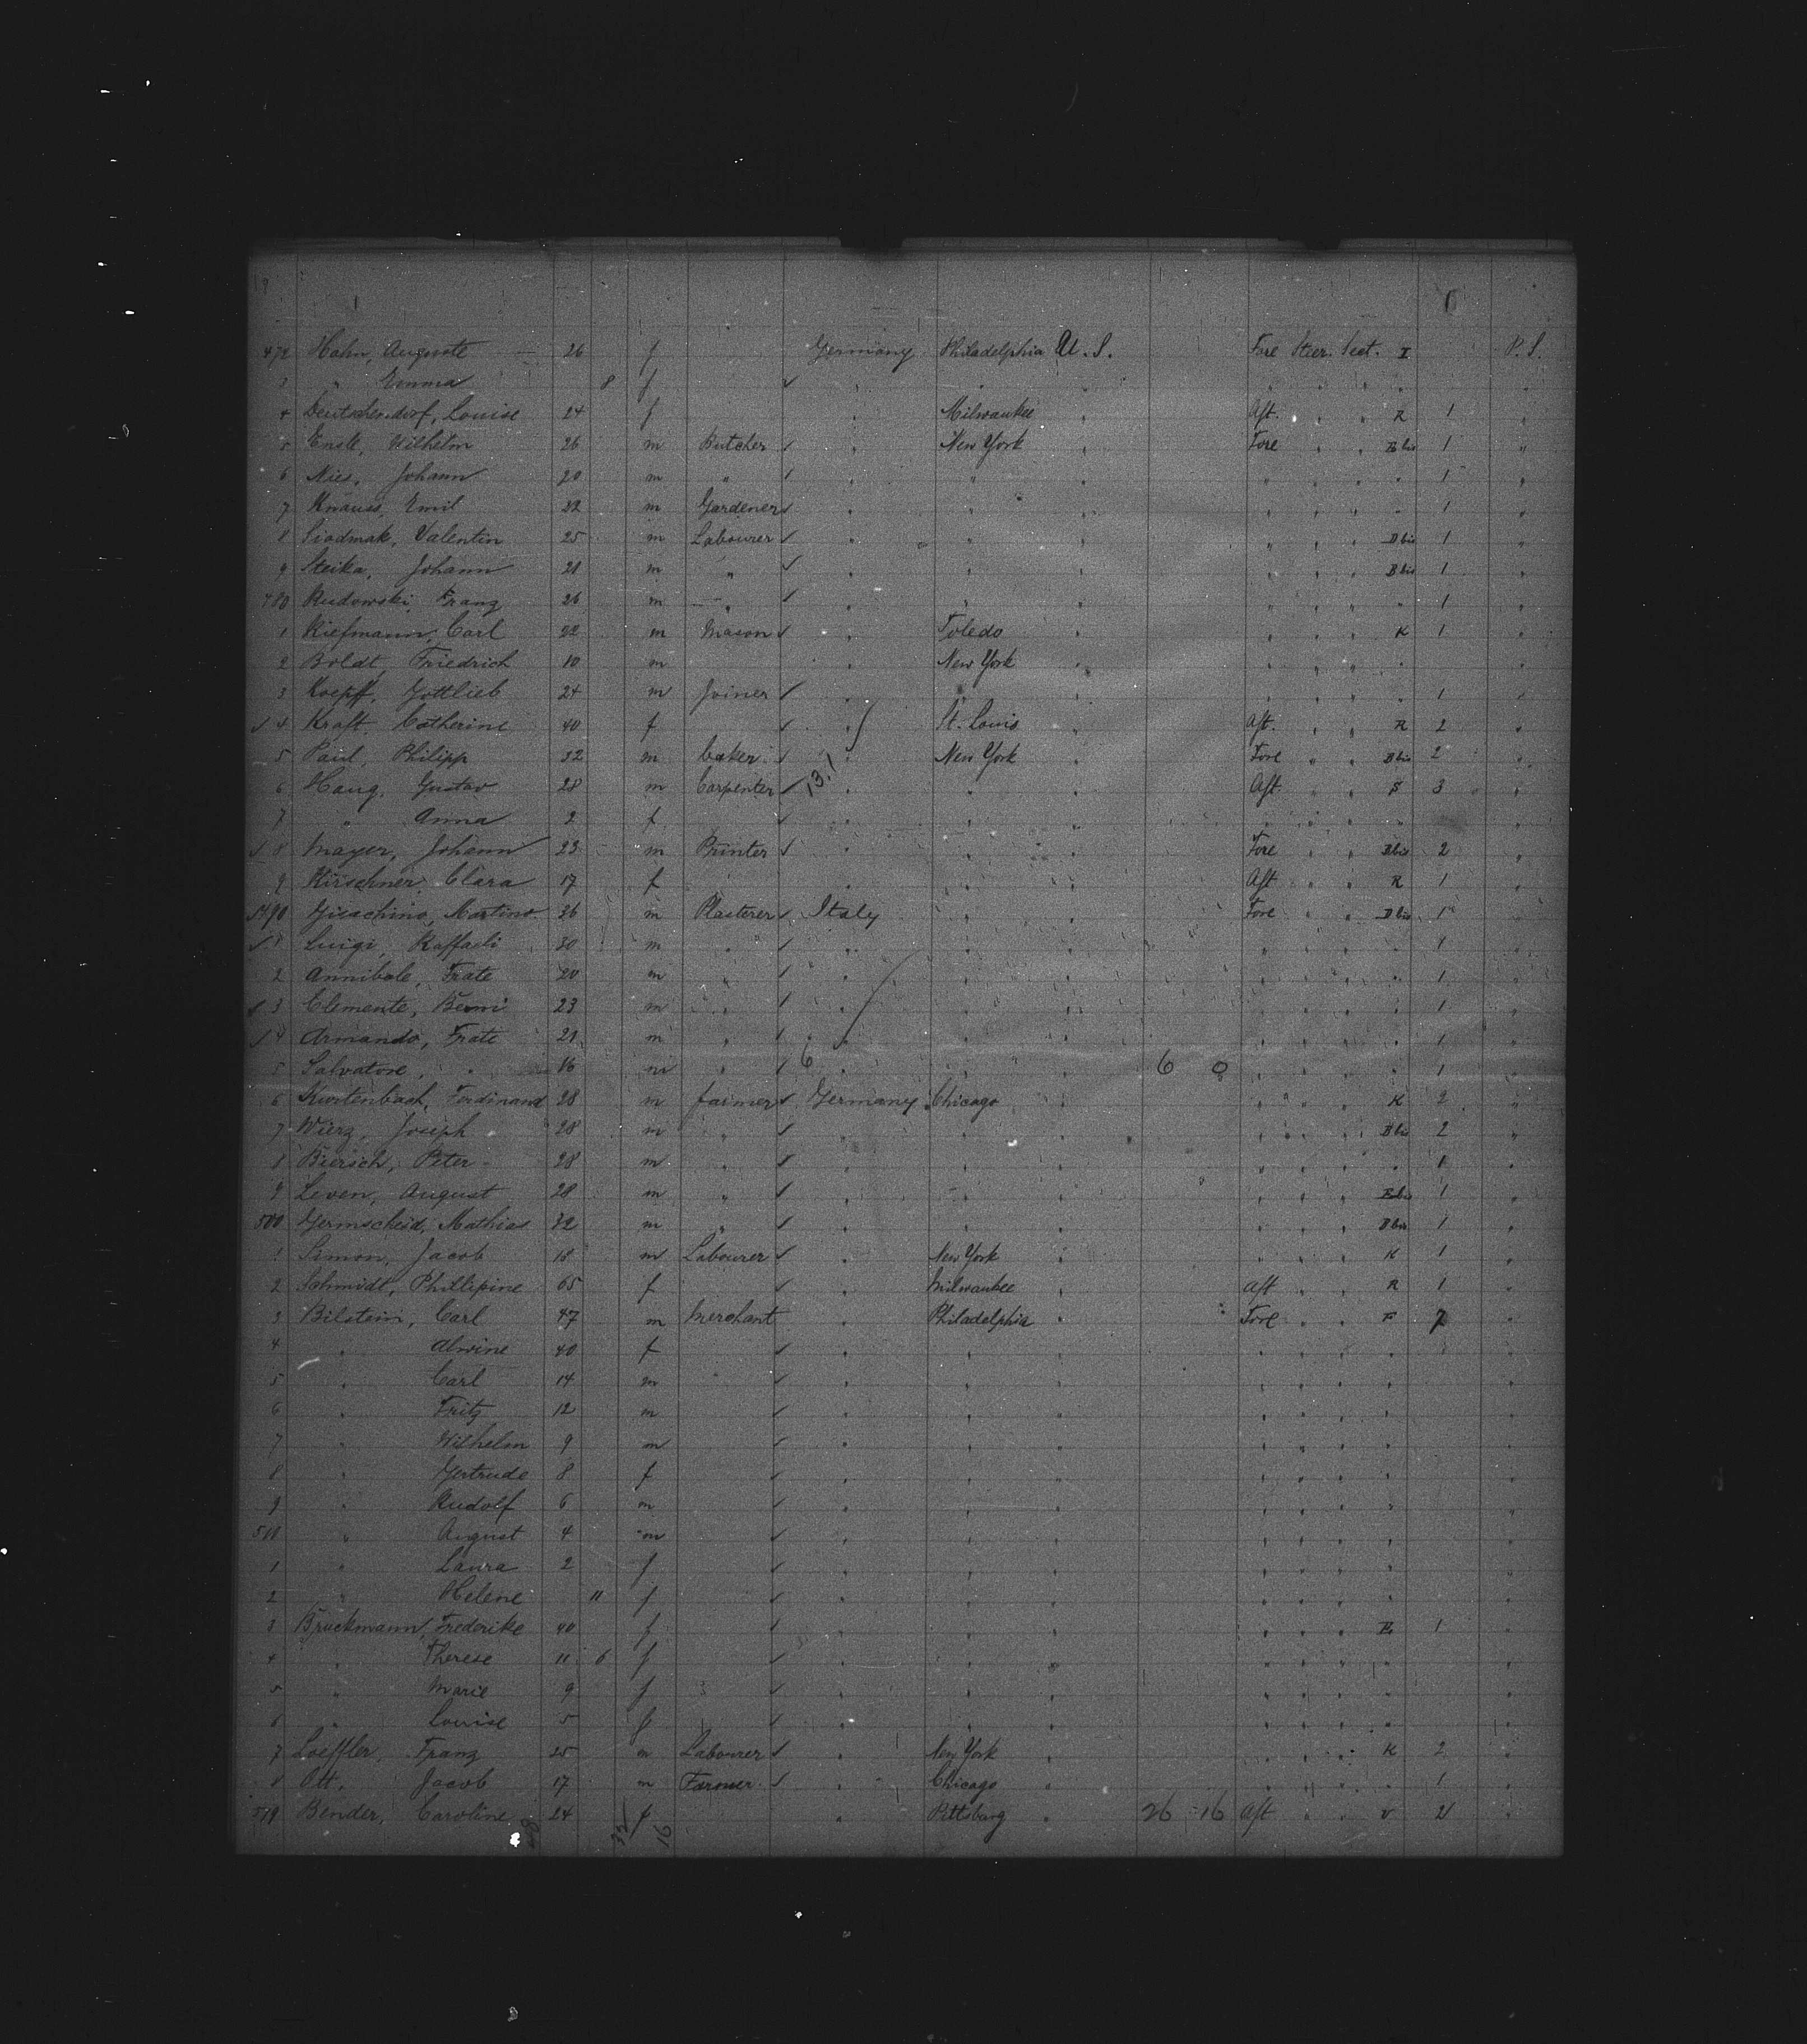 472 Hahn, Auguste — 26 f Germany Philadelphia U. S. Fore Steer. Sect. I P. S.
3 " Emma 8 f ✓ " " " " " " "
4 Deutschendorf, Louise 24 f " Milwaukee " Aft. " " R 1 "
5 Ensle, Wilhelm 26 m Butcher ✓ " New York " Fore " " B bis 1 "
6 Nies, Johann 20 m " ✓ " " " " " " " 1 "
7 Knauss, Emil 22 m Gardener ✓ " " " " " " " 1 "
8 Siodmak, Valentin 25 m Labourer ✓ " " " " " " D bis 1 "
9 Steika, Johann 21 m " ✓ " " " " " " B bis 1 "
480 Rudowski, Franz 26 m " ✓ " " " " " " " 1 "
1 Kiefmann, Carl 22 m Mason ✓ " Toledo " " " " K 1 "
2 Boldt, Friedrich 10 m " New York " " " " " "
3 Koepff, Gottlieb 24 m Joiner ✓ " " " " " " " 1 "
✓ 4 Kraft, Catherine 40 f ✓ " St. Louis " Aft. " " R 2 "
5 Paul, Philipp 32 m baker ✓ " New York " Fore " " B bis 2 "
6 Haug, Gustav 28 m Carpenter ✓ 13.1 " " " Aft " " S 3 "
7 " Anna 2 f ✓ " " " " " " "
✓ 8 Mayer, Johann 23 m Printer ✓ " " " Fore " " B bis 2 "
9 Kirschner, Clara 17 f " " " Aft " " R 1 "
✓ 490 Martino 36 m Plasterer ✓ Italy " " Fore " " D bis 1 "
✓ 1 Luigi, Raffaeli 30 m " ✓ " " " " " " " 1 "
2 Annibale, Frate 20 m " ✓ " " " " " " " 1 "
✓ 3 Clemente, 23 m " ✓ " " " " " " " 1 "
✓ 4 Armando, Frate 21 m " ✓ " " " " " " " 1 "
5 Salvatore, " 16 m " ✓ 6 " " 6 0 " " " " 1 "
6 Kurtenbach, Ferdinand 28 m farmer ✓ Germany Chicago " " " " K 2 "
7 Wierz, Joseph 28 m " ✓ " " " " " " B bis 2 "
8 Biersch, Peter 28 m " ✓ " " " " " " " 1 "
9 Leven, August 28 m " ✓ " " " " " " bis 1 "
500 Germscheid, Mathias 32 m " ✓ " " " " " " D bis 1 "
1 Simon, Jacob 18 m Labourer ✓ " New York " " " " K 1 "
2 Schmidt, Phillipine 65 f ✓ " Milwaukee " Aft " " R 1 "
3 Bilstein, Carl 47 m Merchant " Philadelphia " Fore " " F 7 "
4 " Alwine 40 f ✓ " " " " " " " "
5 " Carl 14 m ✓ " " " " " " " "
6 " Fritz 12 m ✓ " " " " " " " "
7 " Wilhelm 9 m ✓ " " " " " " " "
8 " Gertrude 8 f ✓ " " " " " " " "
9 " Rudolf 6 m ✓ " " " " " " " "
" August 4 m ✓ " " " " " " " "
1 " Laura 2 f ✓ " " " " " " " "
2 " Helene 11 f ✓ " " " " " " " "
3 Bruckmann, Frederike 40 f ✓ " " " " " " 1 "
4 " Therese 11 6 f ✓ " " " " " " " "
5 " Marie 9 f ✓ " " " " " " " "
6 " Louise 5 f ✓ " " " " " " " "
7 Loeffler, Franz 25 m Labourer ✓ " New York " " " " K 2 "
8 Ott, Jacob 17 m Farmer ✓ " Chicago " " " " " 1 "
519 Bender, Caroline 24 f " Pittsburg " 26 16 Aft " " V 2 "
48 32 16